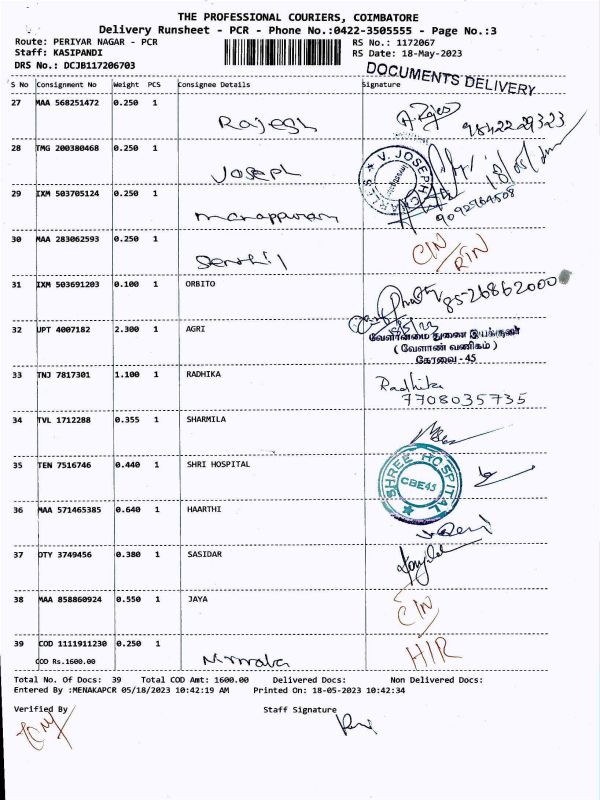 THE PROFESSIONAL COURIERS, COIMBATORE
Delivery Runsheet - PCR - Phone No.:0422-3505555 - Page No.:3
Route: PERIYAR NAGAR - PCR RS No.: 1172067
Staff: KASIPANDI RS Date: 18-May-2023
DRS No.: DCJB117206703
DOCUMENTS DELIVERY
S No Consignment No Weight PCS Consignee Details Signature
27 MAA 568251472 0.250 1 Rajesh
28 TMG 200380468 0.250 1 Joseph
V. JOSEPH
29 IXM 503705124 0.250 1 manappuram
9092964508
30 MAA 283062593 0.250 1 Senthil CIN/RIN
31 IXM 503691203 0.100 1 ORBITO 8526862000
32 UPT 4007182 2.300 1 AGRI
வேளாண்மை துணை இயக்குனர்
( வேளாண் வணிகம் )
கோவை - 45
33 TNJ 7817301 1.100 1 RADHIKA Radhika
7708035735
34 TVL 1712288 0.355 1 SHARMILA
35 TEN 7516746 0.440 1 SHRI HOSPITAL
SHREE HOSPITAL
CBE45
36 MAA 571465385 0.640 1 HAARTHI
37 OTY 3749456 0.380 1 SASIDAR
38 MAA 858860924 0.550 1 JAYA CIN
39 COD 1111911230 0.250 1 HIR
COD Rs.1600.00
Total No. Of Docs: 39 Total COD Amt: 1600.00 Delivered Docs: Non Delivered Docs:
Entered By :MENAKAPCR 05/18/2023 10:42:19 AM Printed On: 18-05-2023 10:42:34
Verified By Staff Signature